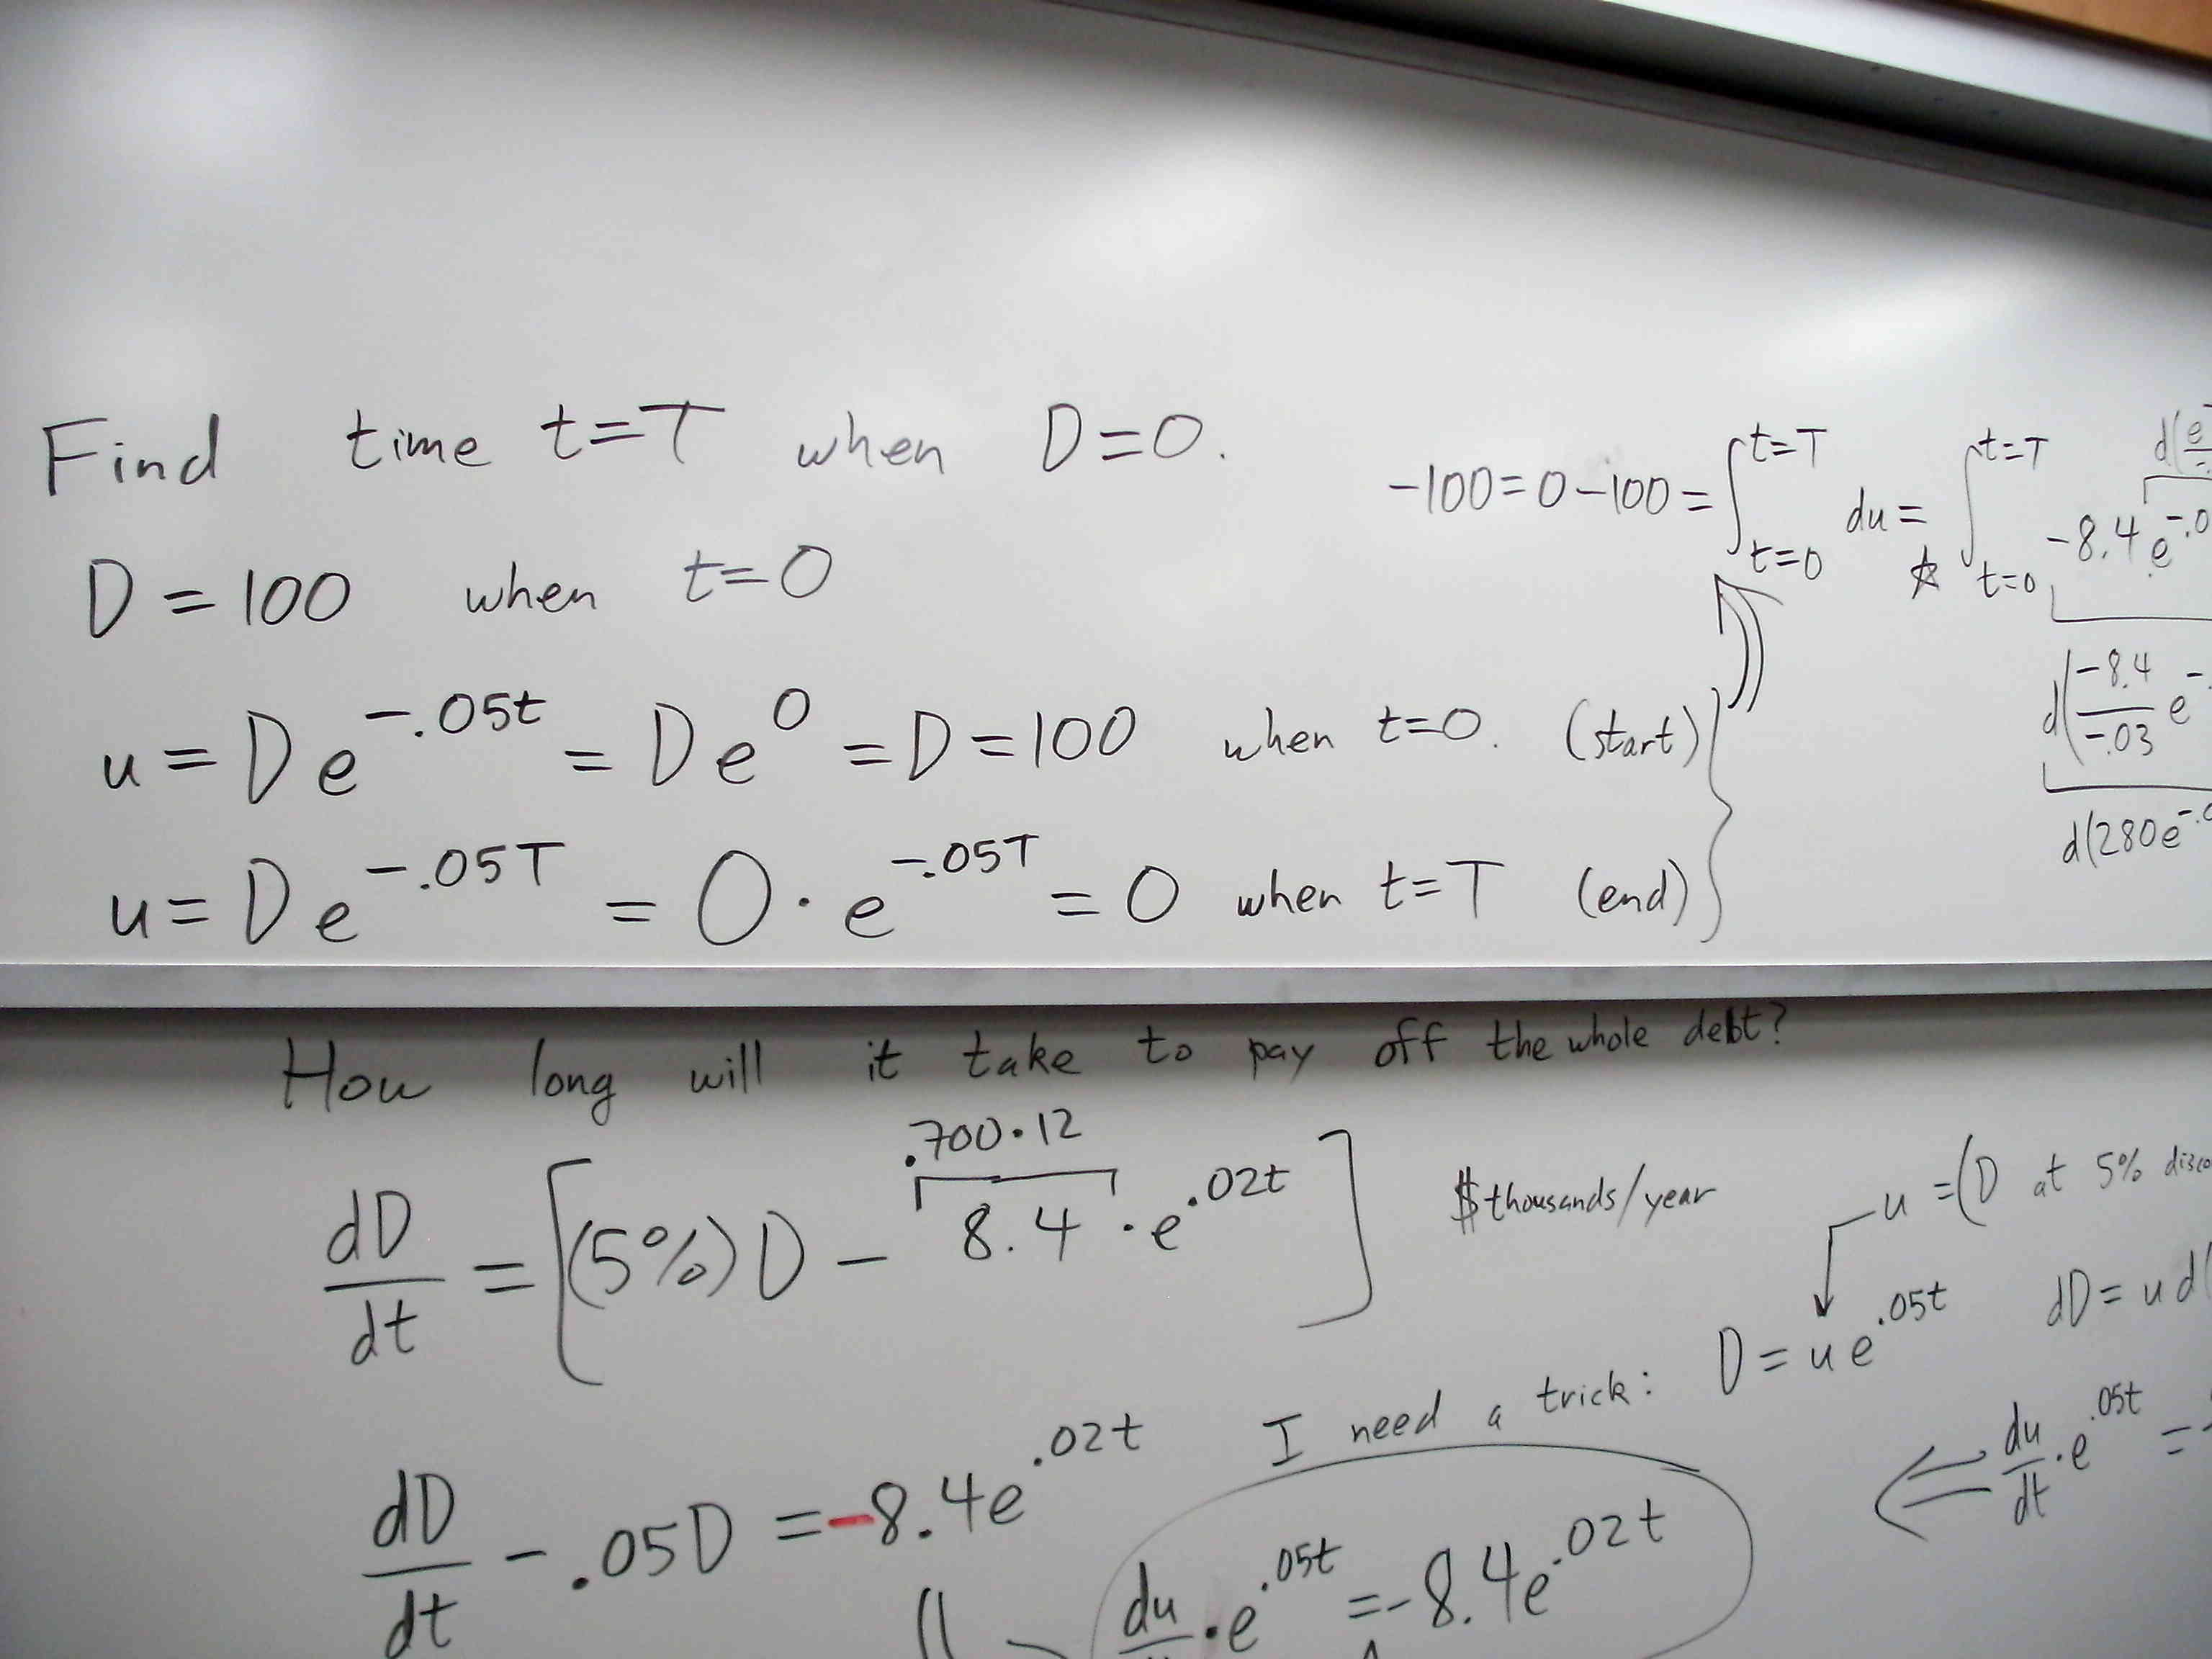 Find time t=T when D=0.
D = 100 when t=0
u = De^{-.05t} = De^0 = D = 100 when t=0. (start)
u = De^{-.05T} = 0 · e^{-.05T} = 0 when t=T (end)
-100 = 0 - 100 = ∫_{t=0}^{t=T} du = ∫_{t=0}^{t=T} -8.4 e^{-.0
☆
d(e
d(-8.4/-.03 e^-.
d(280e^{-.0
How long will it take to pay off the whole debt?
.700·12
dD/dt = [(5%)D - 8.4 · e^{.02t}] $thousands/year
u = (D at 5% disco
D = ue^{.05t} dD = u d(
dD/dt - .05D = -8.4e^{.02t} I need a trick:
⇐ du/dt · e^{.05t} = -
du · e^{.05t} = -8.4e^{.02t}